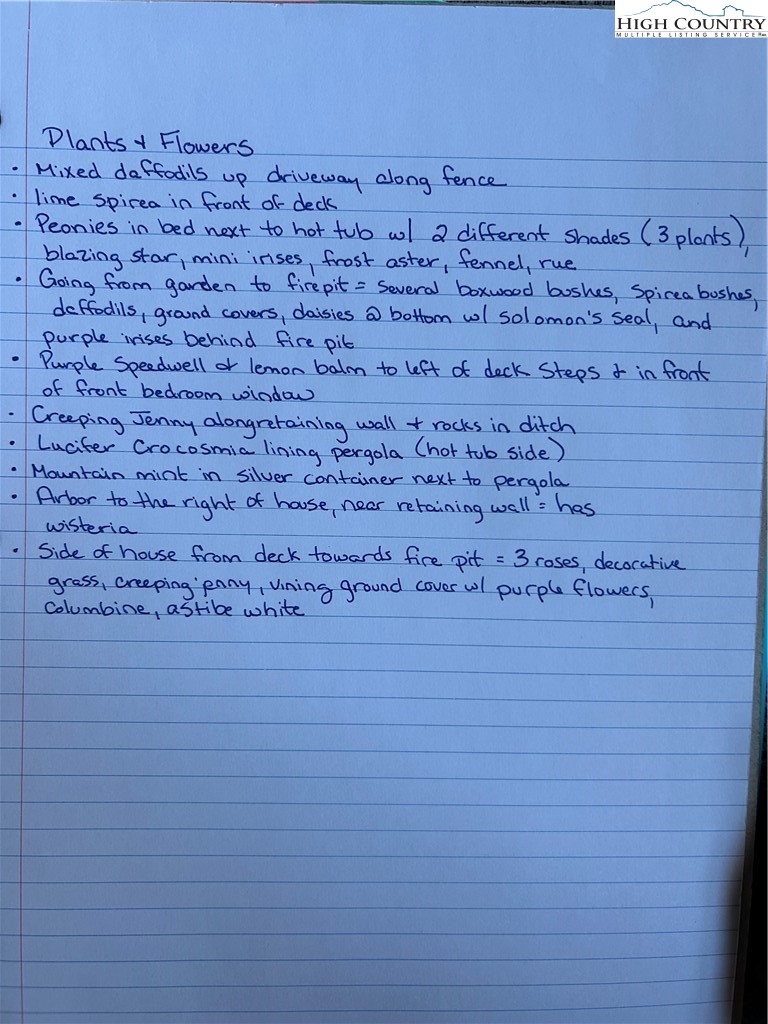 HIGH COUNTRY
MULTIPLE LISTING SERVICE
Plants & Flowers
• Mixed daffodils up driveway along fence
• lime spirea in front of deck
• Peonies in bed next to hot tub w/ 2 different shades (3 plants),
blazing star, mini irises, frost aster, fennel, rue
• Going from garden to firepit = several boxwood bushes, Spirea bushes,
daffodils, ground covers, daisies @ bottom w/ solomon's seal, and
purple irises behind fire pit
• Purple Speedwell & lemon balm to left of deck Steps & in front
of front bedroom window
• Creeping Jenny along retaining wall & rocks in ditch
• Lucifer Crocosmia lining pergola (hot tub side)
• Mountain mint in silver container next to pergola
• Arbor to the right of house, near retaining wall = has
wisteria
• Side of house from deck towards fire pit = 3 roses, decorative
grass, creeping jenny, vining ground cover w/ purple flowers,
Columbine, astibe white